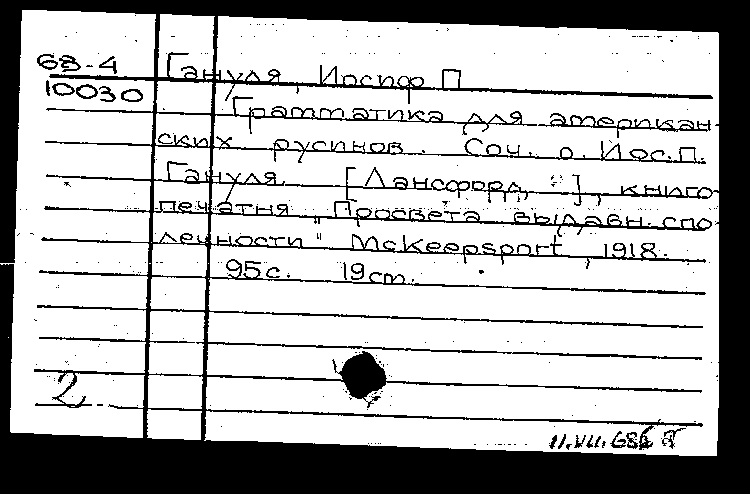 68-4 Гануля, Иосиф П
10030
Грамматика для американ-
ских русинов. Соч. о. Иос.П.
Гануля. [Лансфорд, ], книго-
печатня „Просвета выдавн. спо-
лечности" McKeepsport, 1918.
95с. 19cm.
2
11.VII.68